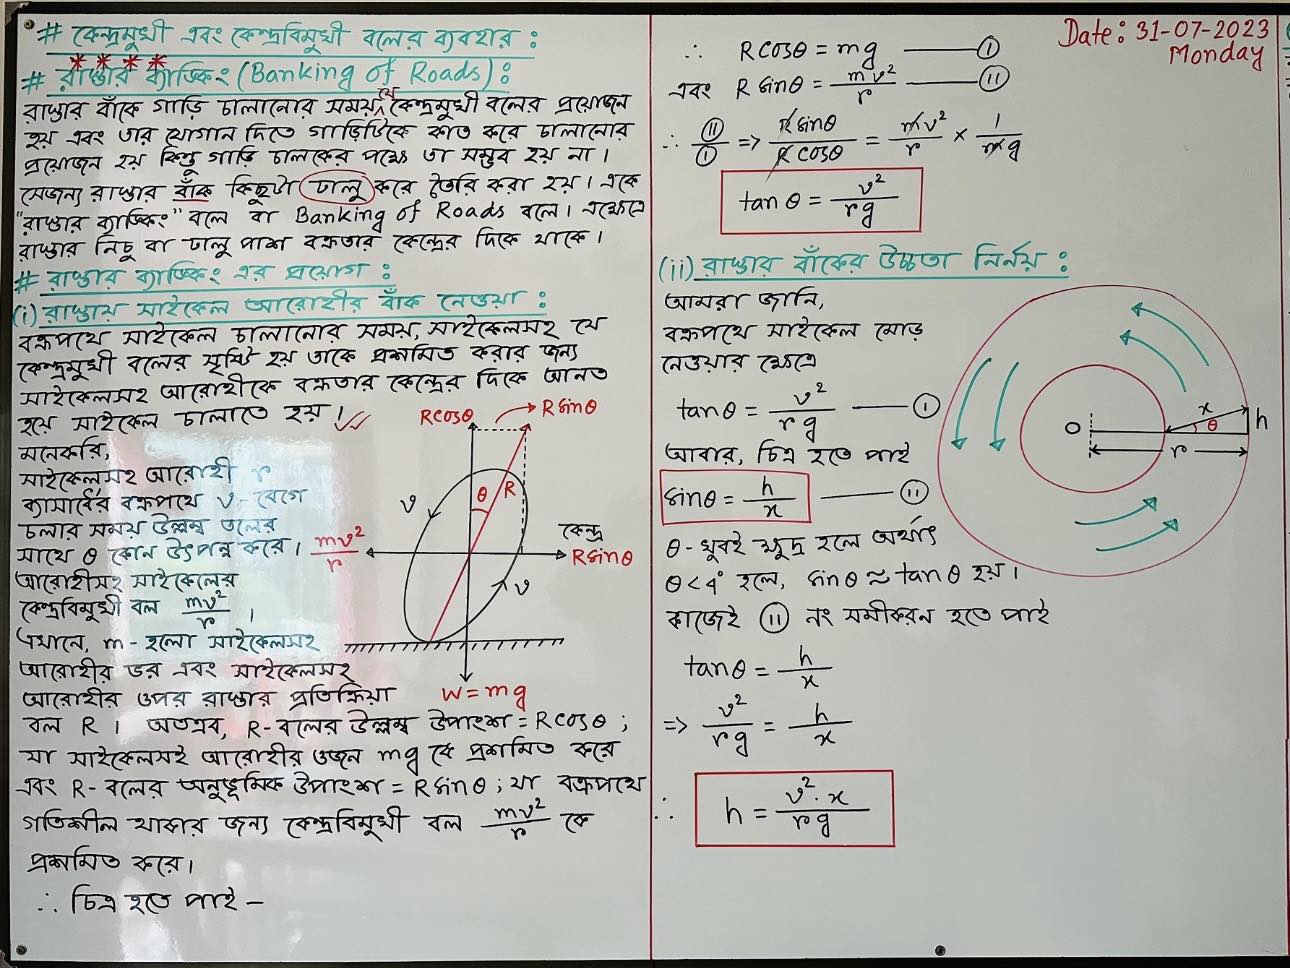 # কেন্দ্রমুখী এবং কেন্দ্রবিমুখী বলের ব্যবহার :
# রাস্তার ব্যাঙ্কিং (Banking of Roads) :
রাস্তার বাঁকে গাড়ি চালানোর সময় যে কেন্দ্রমুখী বলের প্রয়োজন
হয় এবং তার যোগান দিতে গাড়িটিকে কাত করে চালানোর
প্রয়োজন হয় কিন্তু গাড়ি চালকের পক্ষে তা সম্ভব হয় না।
সেজন্য রাস্তার বাঁক কিছুটা ঢালু করে তৈরি করা হয়। একে
"রাস্তার ব্যাঙ্কিং" বলে বা Banking of Roads বলে। এক্ষেত্রে
রাস্তার নিচু বা ঢালু পাশ বক্রতার কেন্দ্রের দিকে থাকে।
# রাস্তার ব্যাঙ্কিং এর প্রয়োগ :
(i) রাস্তায় সাইকেল আরোহীর বাঁক নেওয়া :
বক্রপথে সাইকেল চালানোর সময়, সাইকেলসহ যে
কেন্দ্রমুখী বলের সৃষ্টি হয় তাকে প্রশমিত করার জন্য
সাইকেলসহ আরোহীকে বক্রতার কেন্দ্রের দিকে আনত
হয়ে সাইকেল চালাতে হয়।
মনেকরি,
সাইকেলসহ আরোহী r
ব্যাসার্ধের বক্রপথে v- বেগে
চলার সময় উল্লম্ব তলের
সাথে θ কোন উৎপন্ন করে।
আরোহীসহ সাইকেলের
কেন্দ্রবিমুখী বল mv²/r ।
এখানে, m- হলো সাইকেলসহ
আরোহীর ভর এবং সাইকেলসহ
আরোহীর ওপর রাস্তার প্রতিক্রিয়া
বল R । অতএব, R- বলের উল্লম্ব উপাংশ = R cosθ ;
যা সাইকেলসহ আরোহীর ওজন mg কে প্রশমিত করে
এবং R- বলের অনুভূমিক উপাংশ = R sinθ ; যা বক্রপথে
গতিশীল থাকার জন্য কেন্দ্রবিমুখী বল mv²/r কে
প্রশমিত করে।
∴ চিত্র হতে পাই –
Rcosθ
Rsinθ
θ
R
v
কেন্দ্র
mv²/r
Rsinθ
v
W = mg
Date: 31-07-2023
Monday
∴ Rcosθ = mg —— (I)
এবং R sinθ = mv²/r —— (II)
∴ (II)/(I) => R sinθ / R cosθ = mv²/r × 1/mg
tanθ = v²/rg
(ii) রাস্তার বাঁকের উচ্চতা নির্নয় :
আমরা জানি,
বক্রপথে সাইকেল মোড়
নেওয়ার ক্ষেত্রে
tanθ = v²/rg —— (I)
আবার, চিত্র হতে পাই
sinθ = h/x —— (II)
θ- খুবই ক্ষুদ্র হলে অর্থাৎ
θ<4° হলে, sinθ ≈ tanθ হয়।
কাজেই (II) নং সমীকরন হতে পাই
tanθ = h/x
=> v²/rg = h/x
∴ h = v².x/rg
O
x
θ
h
r